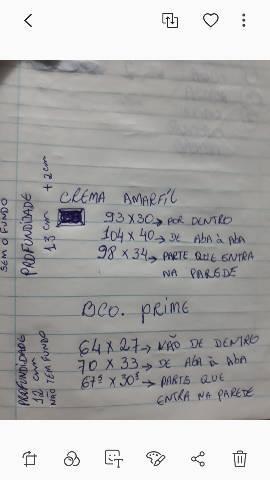 CREMA AMARFIL
93 X 30 → POR DENTRO
104 X 40 → DE ABA À ABA
98 X 34 → PARTE QUE ENTRA
NA PAREDE
SEM O FUNDO
PROFUNDIDADE
13 cm + 2 cm
BCO. PRIME
64 X 27 → NÃO DE DENTRO
70 X 33 → DE ABA À ABA
67⁵ X 30⁵ → PARTE QUE
ENTRA NA PARETE
PROFUNDIDADE
12 cm
NÃO TEM FUNDO